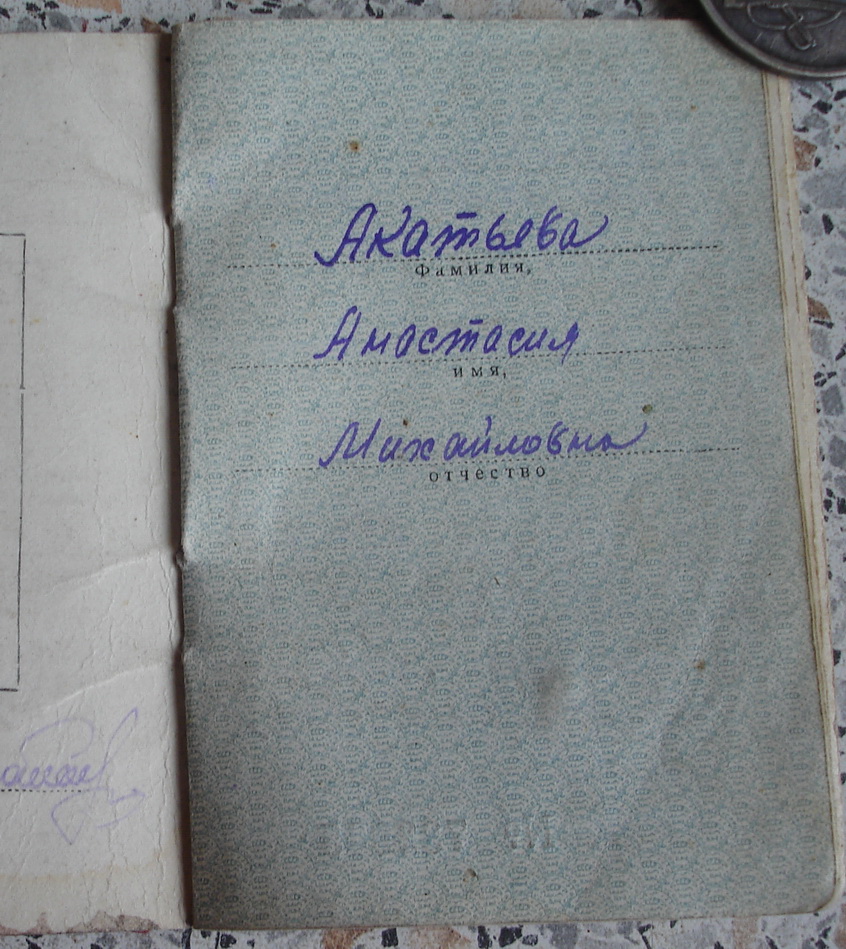 Акатьева
Фамилия,
Анастасия
имя,
Михайловна
отчество